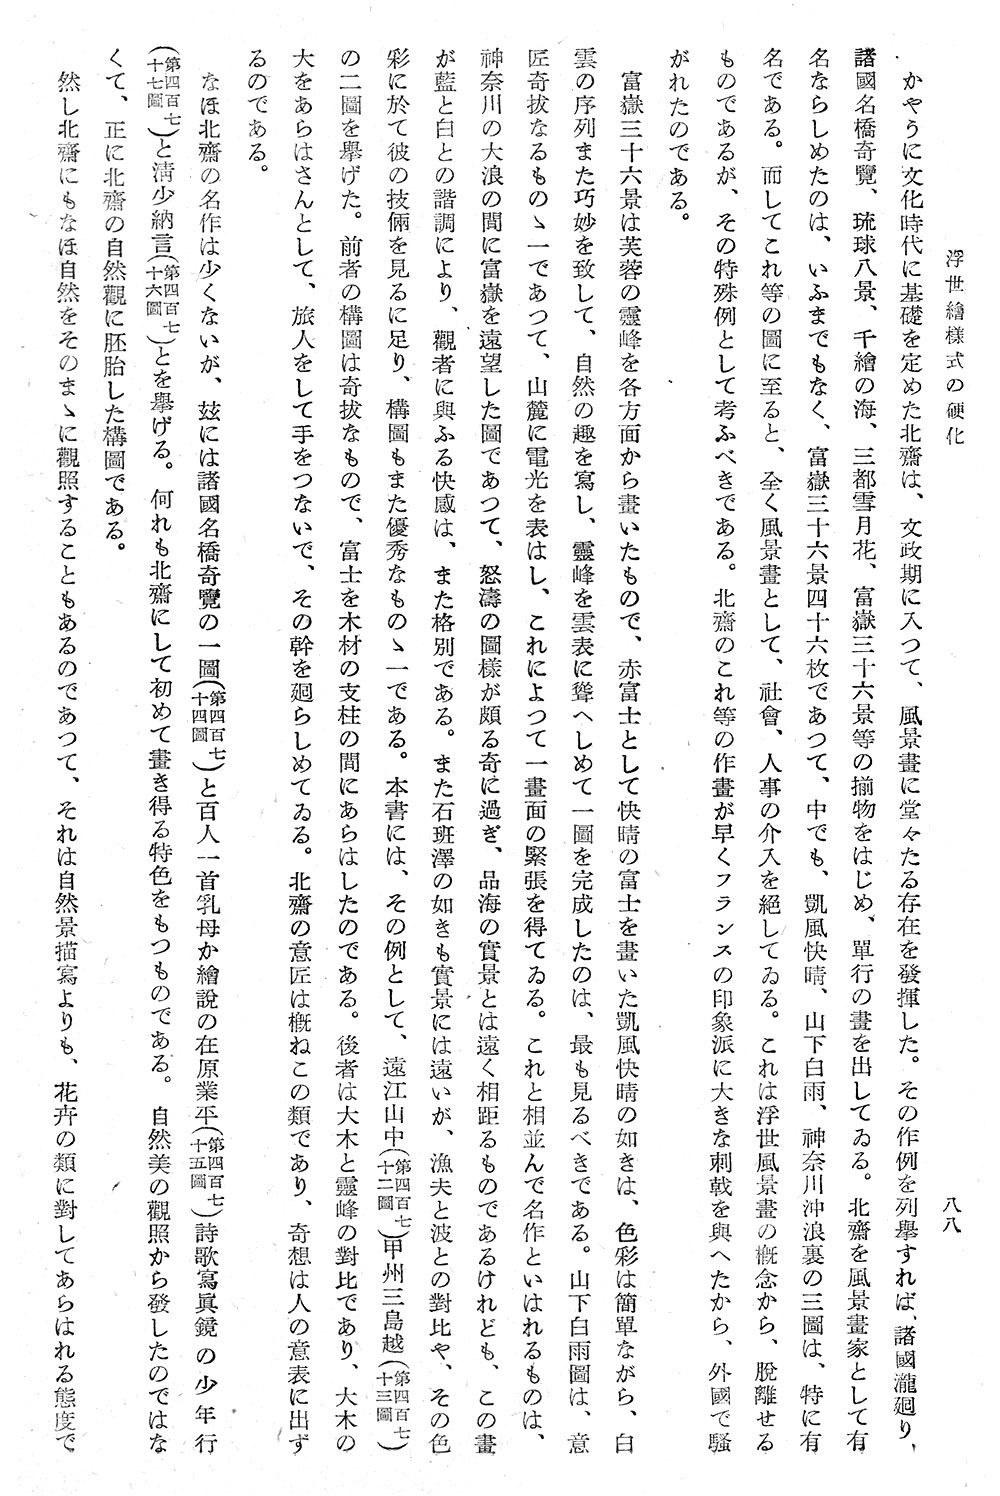 浮世繪樣式の硬化
八八
かやうに文化時代に基礎を定めた北齋は、文政期に入つて、風景畫に堂々たる存在を發揮した。その作例を列擧すれば、諸國瀧廻り、
諸國名橋奇覽、琉球八景、千繪の海、三都雪月花、富嶽三十六景等の揃物をはじめ、單行の畫を出してゐる。北齋を風景畫家として有
名ならしめたのは、いふまでもなく、富嶽三十六景四十六枚であつて、中でも、凱風快晴、山下白雨、神奈川沖浪裏の三圖は、特に有
名である。而してこれ等の圖に至ると、全く風景畫として、社會、人事の介入を絕してゐる。これは浮世風景畫の槪念から、脫離せる
ものであるが、その特殊例として考ふべきである。北齋のこれ等の作畫が早くフランスの印象派に大きな刺戟を與へたから、外國で騷
がれたのである。
富嶽三十六景は芙蓉の靈峰を各方面から畫いたもので、赤富士として快晴の富士を畫いた凱風快晴の如きは、色彩は簡單ながら、白
雲の序列また巧妙を致して、自然の趣を寫し、靈峰を雲表に聳へしめて一圖を完成したのは、最も見るべきである。山下白雨圖は、意
匠奇拔なるものゝ一であつて、山麓に電光を表はし、これによつて一畫面の緊張を得てゐる。これと相並んで名作といはれるものは、
神奈川の大浪の間に富嶽を遠望した圖であつて、怒濤の圖樣が頗る奇に過ぎ、品海の實景とは遠く相距るものであるけれども、この畫
が藍と白との諧調により、觀者に與ふる快感は、また格別である。また石班澤の如きも實景には遠いが、漁夫と波との對比や、その色
彩に於て彼の技倆を見るに足り、構圖もまた優秀なものゝ一である。本書には、その例として、遠江山中(第四百七十二圖)甲州三島越(第四百七十三圖)
の二圖を擧げた。前者の構圖は奇拔なもので、富士を木材の支柱の間にあらはしたのである。後者は大木と靈峰の對比であり、大木の
大をあらはさんとして、旅人をして手をつないで、その幹を廻らしめてゐる。北齋の意匠は槪ねこの類であり、奇想は人の意表に出ず
るのである。
なほ北齋の名作は少くないが、玆には諸國名橋奇覽の一圖(第四百七十四圖)と百人一首乳母か繪說の在原業平(第四百七十五圖)詩歌寫眞鏡の少年行
(第四百七十七圖)と淸少納言(第四百七十六圖)とを擧げる。何れも北齋にして初めて畫き得る特色をもつものである。自然美の觀照から發したのではな
くて、正に北齋の自然觀に胚胎した構圖である。
然し北齋にもなほ自然をそのまゝに觀照することもあるのであつて、それは自然景描寫よりも、花卉の類に對してあらはれる態度で